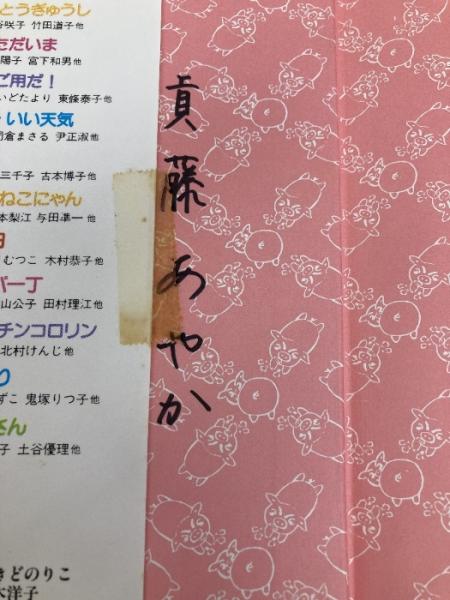 貢藤あやか
とうぎゅうし
咲子 竹田道子 他
ただいま
陽子 宮下和男 他
ご用だ！
いどたより 東條泰子 他
いい天気
倉まさる 尹正淑 他
三千子 古本博子 他
ねこにゃん
本梨江 与田準一 他
むつこ 木村恭子 他
バー丁
山公子 田村理江 他
チンコロリン
北村けんじ 他
ずこ 鬼塚りつ子 他
さん
子 土谷優理 他
きどのりこ
木洋子